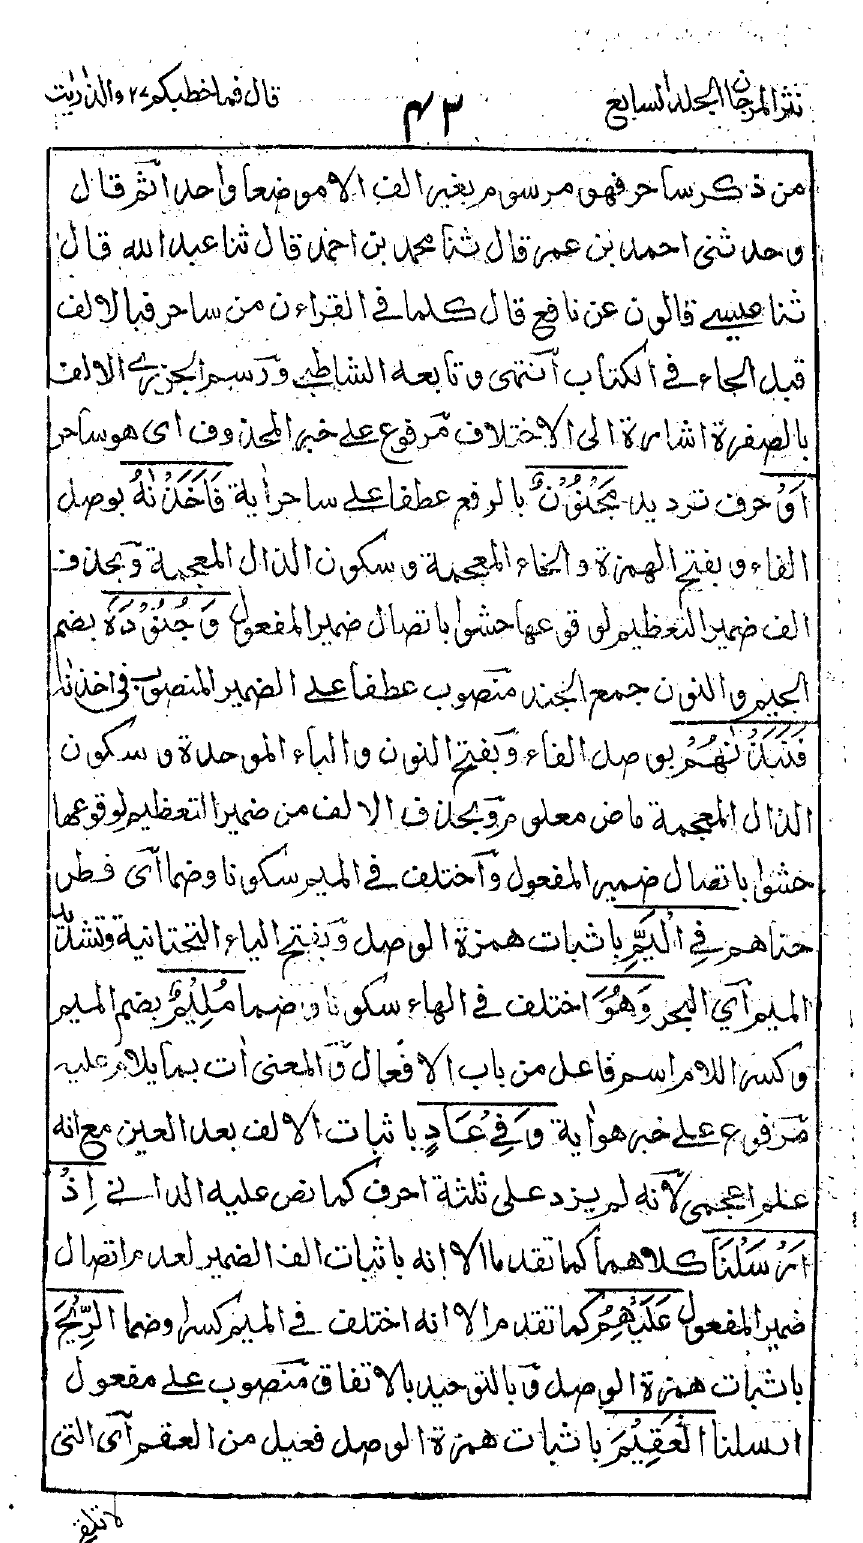 نثر المرجان المجلد السابع
٤٢
قال فما خطبكم ٢٧ والذٰريٰت
من ذكر ساحر فهو مرسوم بغير الف الا موضعا واحدا ثم قال
وحدثنى احمد بن عمر قال ثنا محمد بن احمد قال ثنا عبد الله قال
ثنا عيسے قالون عن نافع قال كلما فى القراءن من ساحر فبالالف
قبل الحاء فى الكتاب انتهى وتابعه الشاطبى ورسم الجزرے الالف
بالصفرة اشارة الى الاختلاف مرفوع على خبر المحذوف اى هو ساحر
اَوْ حرف ترديد مَجْنُوْنٌ بالرفع عطفا على ساحر اٰية فَاَخَذْنٰهُ بوصل
الفاء وبفتح الهمزة والخاء المعجمة وسكون الذال المعجمة وبحذف
الف ضمير التعظيم لوقوعها حشوا باتصال ضمير المفعول وَجُنُوْدَهٗ بضم
الجيم والنون جمع الجند منصوب عطفا على الضمير المنصوب فى اخذنٰه
فَنَبَذْنٰهُمْ بوصل الفاء وبفتح النون والباء الموحدة وسكون
الذال المعجمة ماض معلوم وبحذف الالف من ضمير التعظيم لوقوعها
حشوا باتصال ضمير المفعول واختلف فى الميم سكونا وضما اى فطر
حناهم فِى الْيَمِّ باثبات همزة الوصل وبفتح الياء التحتانية وتشديد
الميم اى البحر وَهُوَ اختلف فى الهاء سكونا وضما مُلِيْمٌ بضم الميم
وكسر اللام اسم فاعل من باب الافعال والمعنى اٰت بما يلام عليه
مرفوع على خبر هو اٰية وَفِىْ عَادٍ باثبات الالف بعد العين مع انه
علم اعجمى لانه لم يزد على ثلثة احرف كما نص عليه الدانى اِذْ
اَرْسَلْنَا كلاهما كما تقدما الا انه باثبات الف الضمير لعدم اتصال
ضمير المفعول عَلَيْهِمْ كما تقدم الا انه اختلف فى الميم كسرا وضما الرِّيْحَ
باثبات همزة الوصل وبالتوحيد بالاتفاق منصوب على مفعول
ارسلنا الْعَقِيْمَ باثبات همزة الوصل فعيل من العقم اى التى
لا تلقح